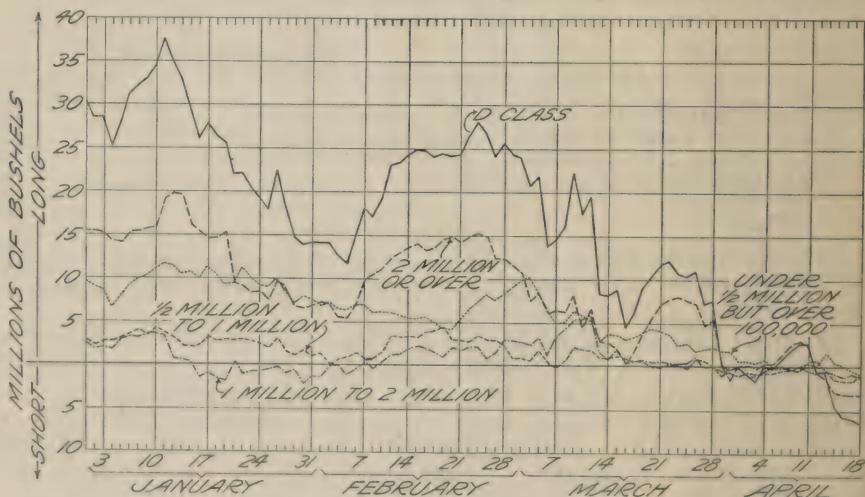 MILLIONS OF BUSHELS
←SHORT LONG→
40
35
30
25
20
15
10
5
5
10
D CLASS
2 MILLION
OR OVER
½ MILLION
TO 1 MILLION
1 MILLION TO 2 MILLION
UNDER
½ MILLION
BUT OVER
100,000
3 10 17 24 31 7 14 21 28 7 14 21 28 4 11 18
JANUARY FEBRUARY MARCH APRIL